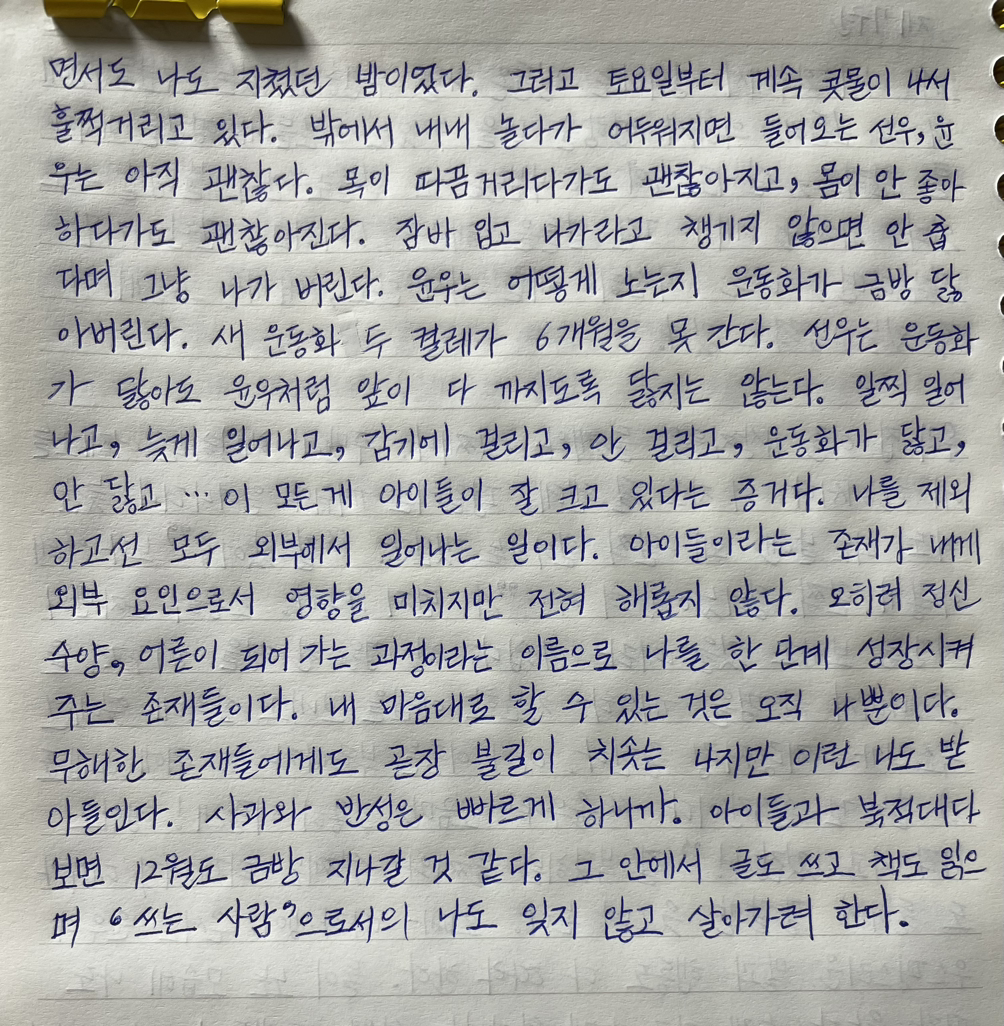 면서도 나도 지쳤던 밤이었다. 그러고 토요일부터 계속 콧물이 나서
훌쩍거리고 있다. 밖에서 내내 놀다가 어두워지면 들어오는 선우, 윤
우는 아직 괜찮다. 목이 따끔거리다가도 괜찮아지고, 몸이 안 좋아
하다가도 괜찮아진다. 잠바 입고 나가라고 챙기지 않으면 안 춥
다며 그냥 나가 버린다. 윤우는 어떻게 노는지 운동화가 금방 닳
아버린다. 새 운동화 두 켤레가 6개월을 못 간다. 선우는 운동화
가 닳아도 윤우처럼 앞이 다 까지도록 닳지는 않는다. 일찍 일어
나고, 늦게 일어나고, 감기에 걸리고, 안 걸리고, 운동화가 닳고,
안 닳고 … 이 모든 게 아이들이 잘 크고 있다는 증거다. 나를 제외
하고선 모두 외부에서 일어나는 일이다. 아이들이라는 존재가 내게
외부 요인으로서 영향을 미치지만 전혀 해롭지 않다. 오히려 정신
수양, 어른이 되어 가는 과정이라는 이름으로 나를 한 단계 성장시켜
주는 존재들이다. 내 마음대로 할 수 있는 것은 오직 나뿐이다.
무해한 존재들에게도 곧장 불길이 치솟는 나지만 이런 나도 받
아들인다. 사과와 반성은 빠르게 하니까. 아이들과 북적대다
보면 12월도 금방 지나갈 것 같다. 그 안에서 글도 쓰고 책도 읽으
며 ‘쓰는 사람’으로서의 나도 잊지 않고 살아가려 한다.